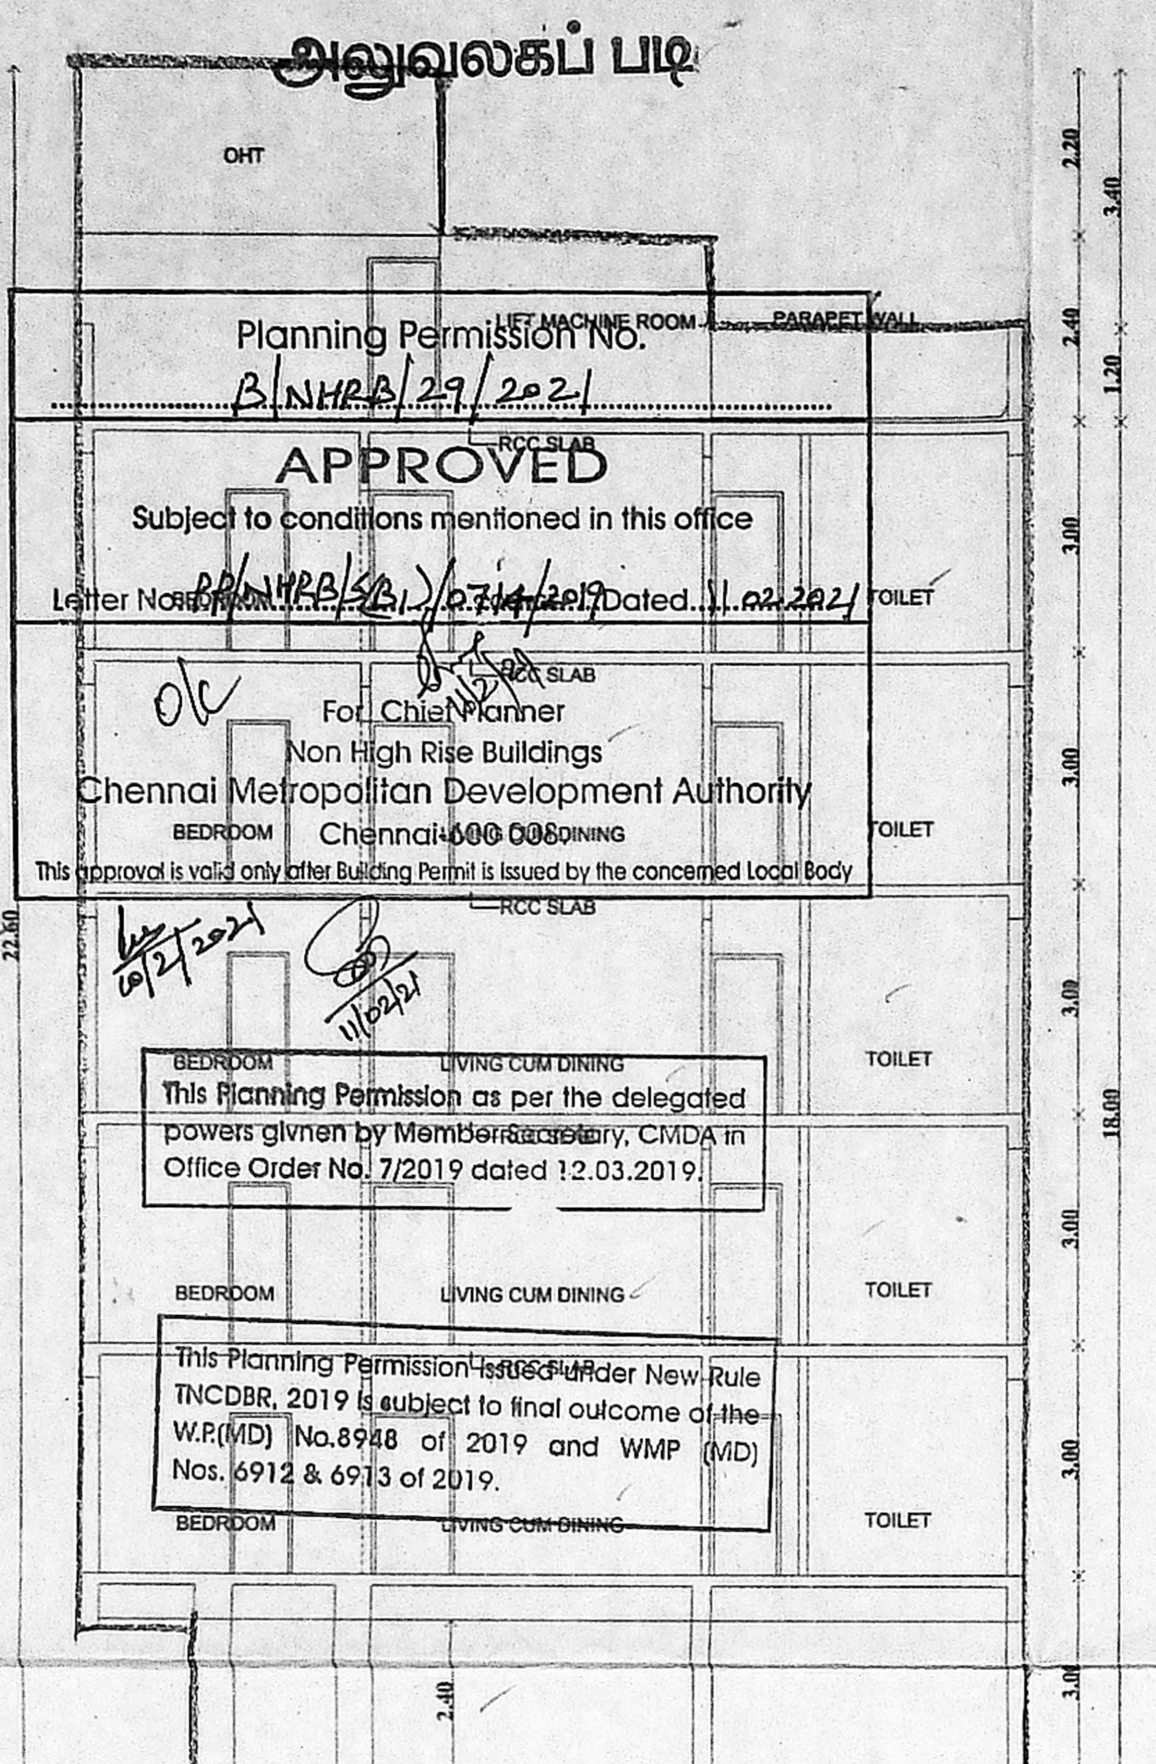 அலுவலகப் படி
OHT
2.20
3.40
LIFT MACHINE ROOM
PARAPET WALL
Planning Permission No.
B/NHRB/29/2021
2.40
1.20
RCC SLAB
APPROVED
Subject to conditions mentioned in this office
3.00
Letter No. PP/NHRB/S(B1)/0714/2019 Dated 11.02.2021
BEDROOM
TOILET
RCC SLAB
O/C
11/2/21
For Chief Planner
Non High Rise Buildings
3.00
Chennai Metropolitan Development Authority
Chennai-600 008.
BEDROOM LIVING CUM DINING TOILET
This approval is valid only after Building Permit is issued by the concerned Local Body
RCC SLAB
22.60
10/2/2021
11/02/21
3.00
BEDROOM LIVING CUM DINING TOILET
This Planning Permission as per the delegated
powers givnen by Member-Secretary, CMDA in
Office Order No. 7/2019 dated 12.03.2019.
18.00
3.00
BEDROOM LIVING CUM DINING TOILET
RCC SLAB
This Planning Permission issued under New Rule
TNCDBR, 2019 is subject to final outcome of the
W.P.(MD) No.8948 of 2019 and WMP (MD)
Nos. 6912 & 6913 of 2019.
3.00
BEDROOM LIVING CUM DINING TOILET
2.40
3.00